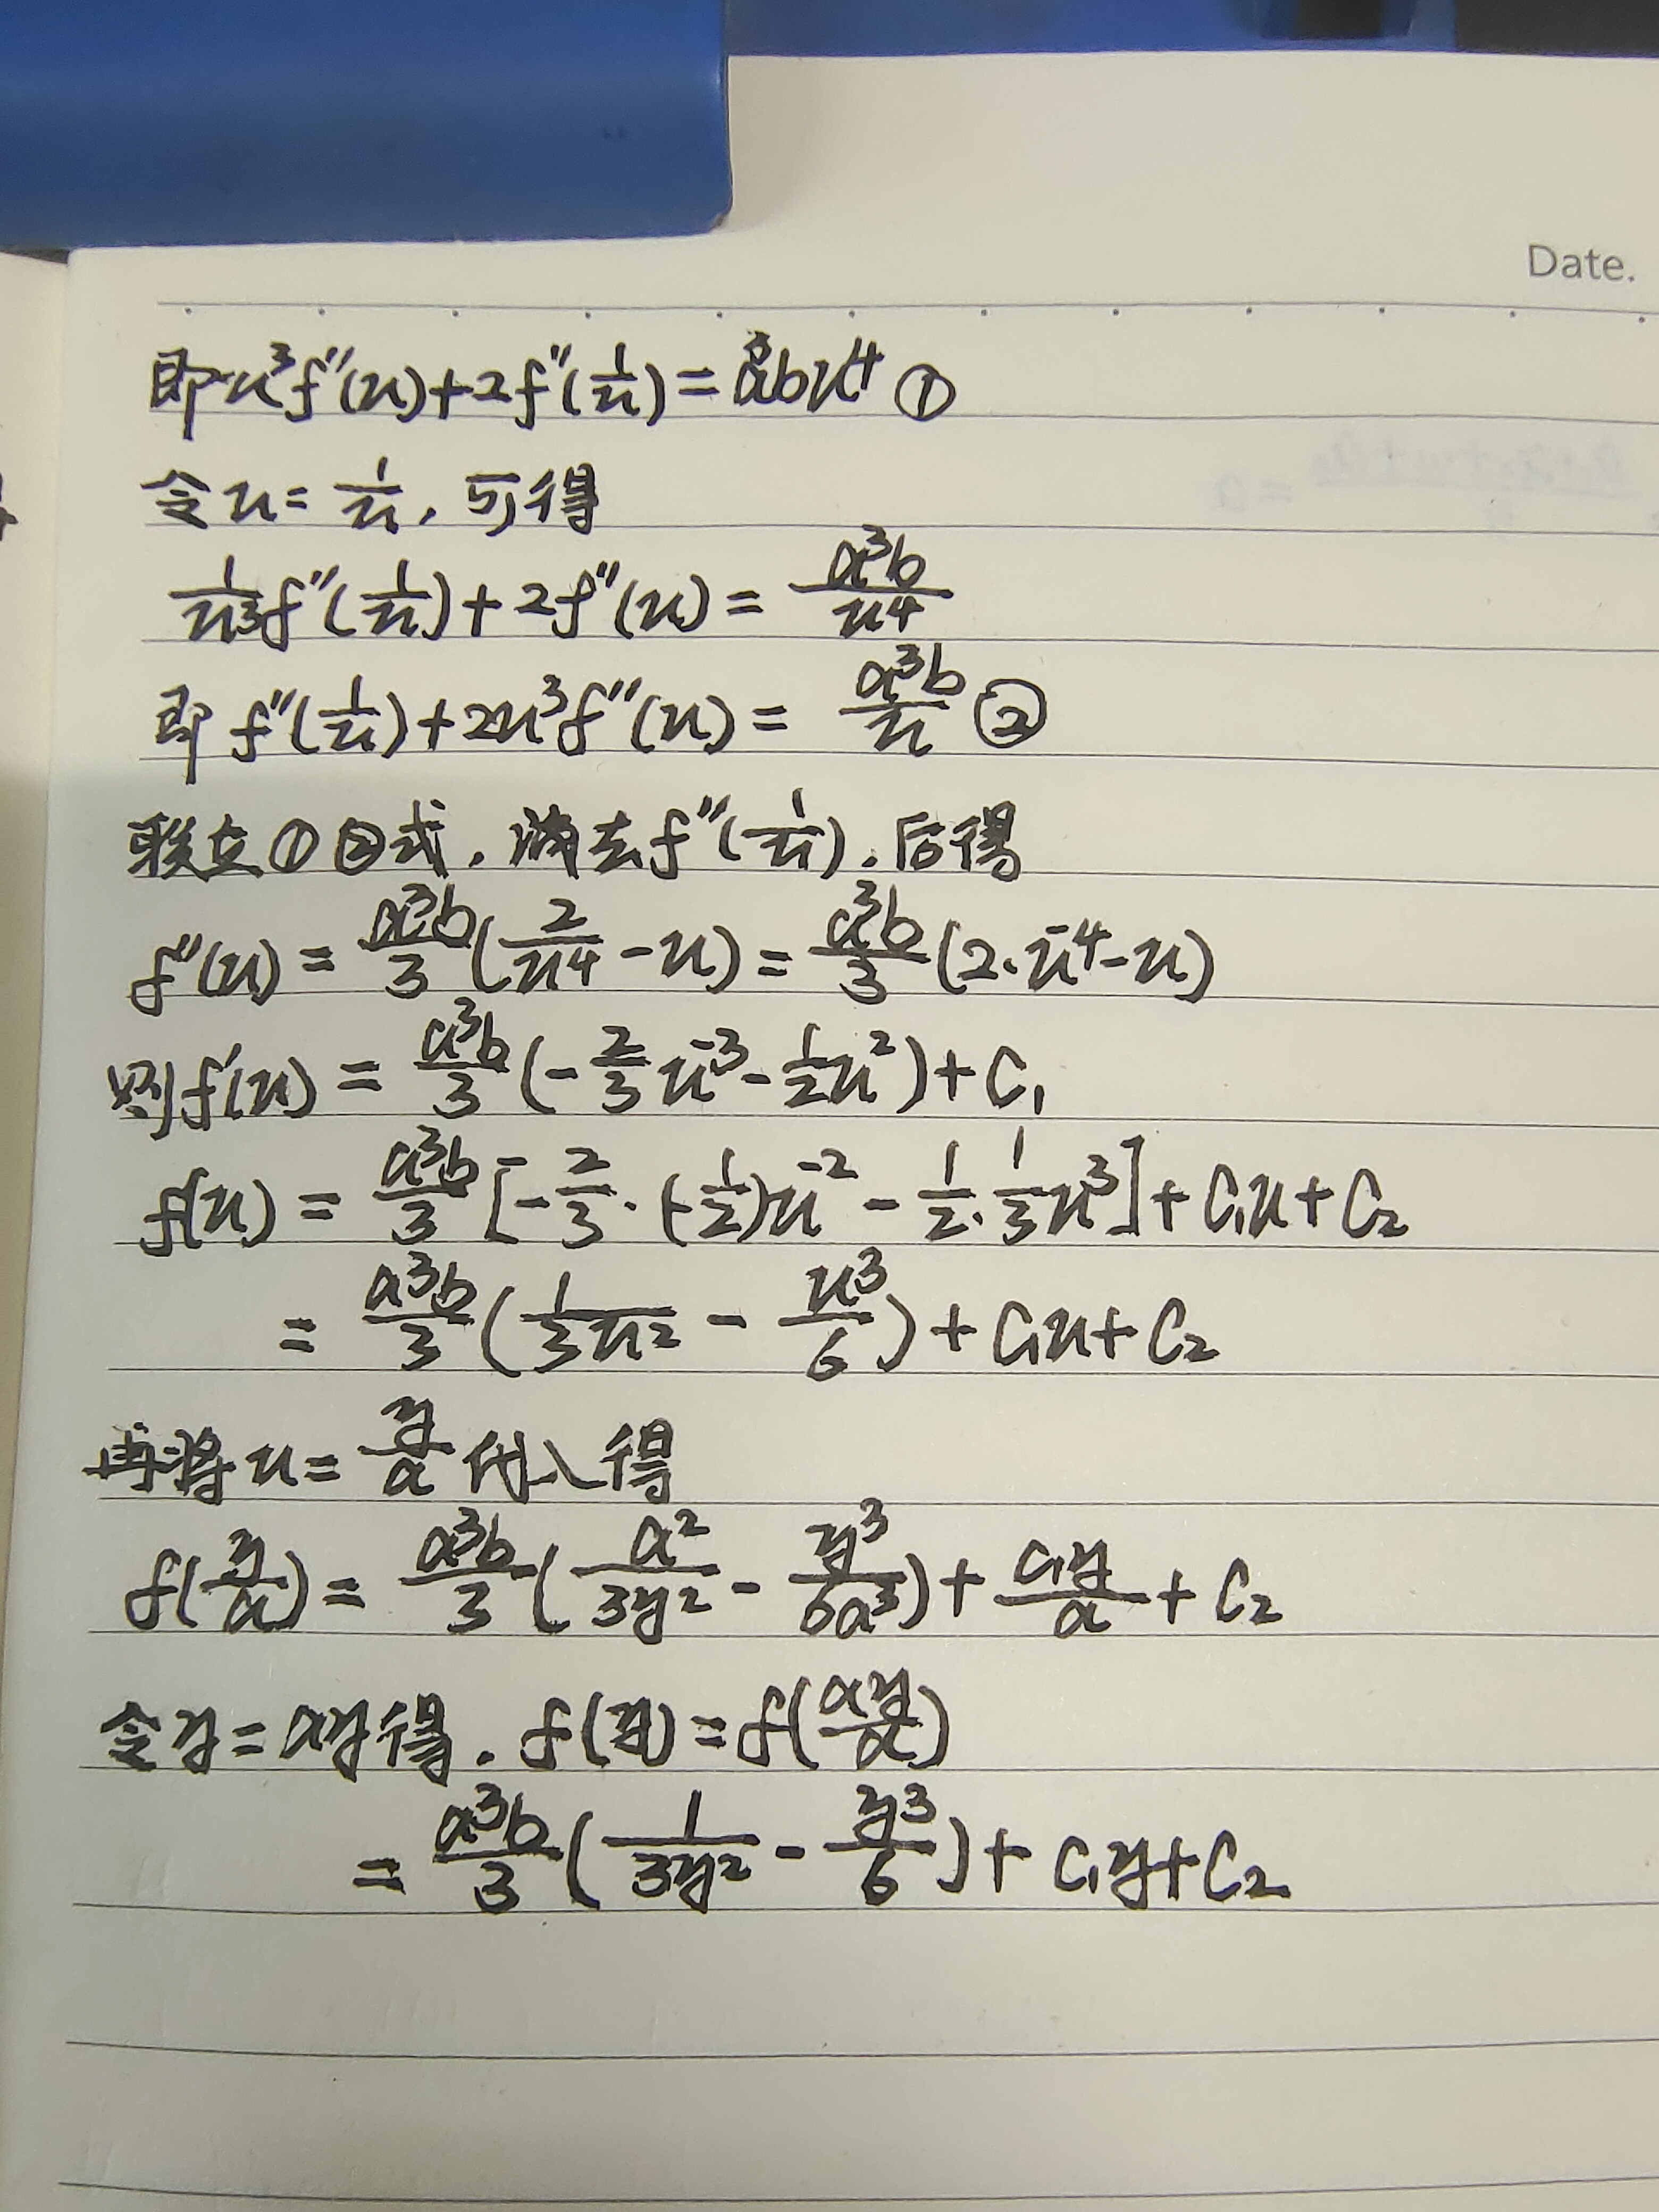 Date.
即u³f″(u)+2f″(1/u)=a³bu⁴ ①
令u=1/u,可得
1/u³f″(1/u)+2f″(u)=a³b/u⁴
即f″(1/u)+2u³f″(u)=a³b/u ②
联立①②式,消去f″(1/u),后得
f″(u)=a³b/3(2/u⁴-u)=a³b/3(2·u⁻⁴-u)
则f′(u)=a³b/3(-2/3u⁻³-1/2u²)+C₁
f(u)=a³b/3[-2/3·(-1/2)u⁻²-1/2·1/3u³]+C₁u+C₂
=a³b/3(1/3u²-u³/6)+C₁u+C₂
再将u=y/a代入得
f(y/a)=a³b/3(a²/3y²-y³/6a³)+C₁y/a+C₂
令y=ay得.f(y)=f(ay/a)
=a³b/3(1/3y²-y³/6)+C₁y+C₂